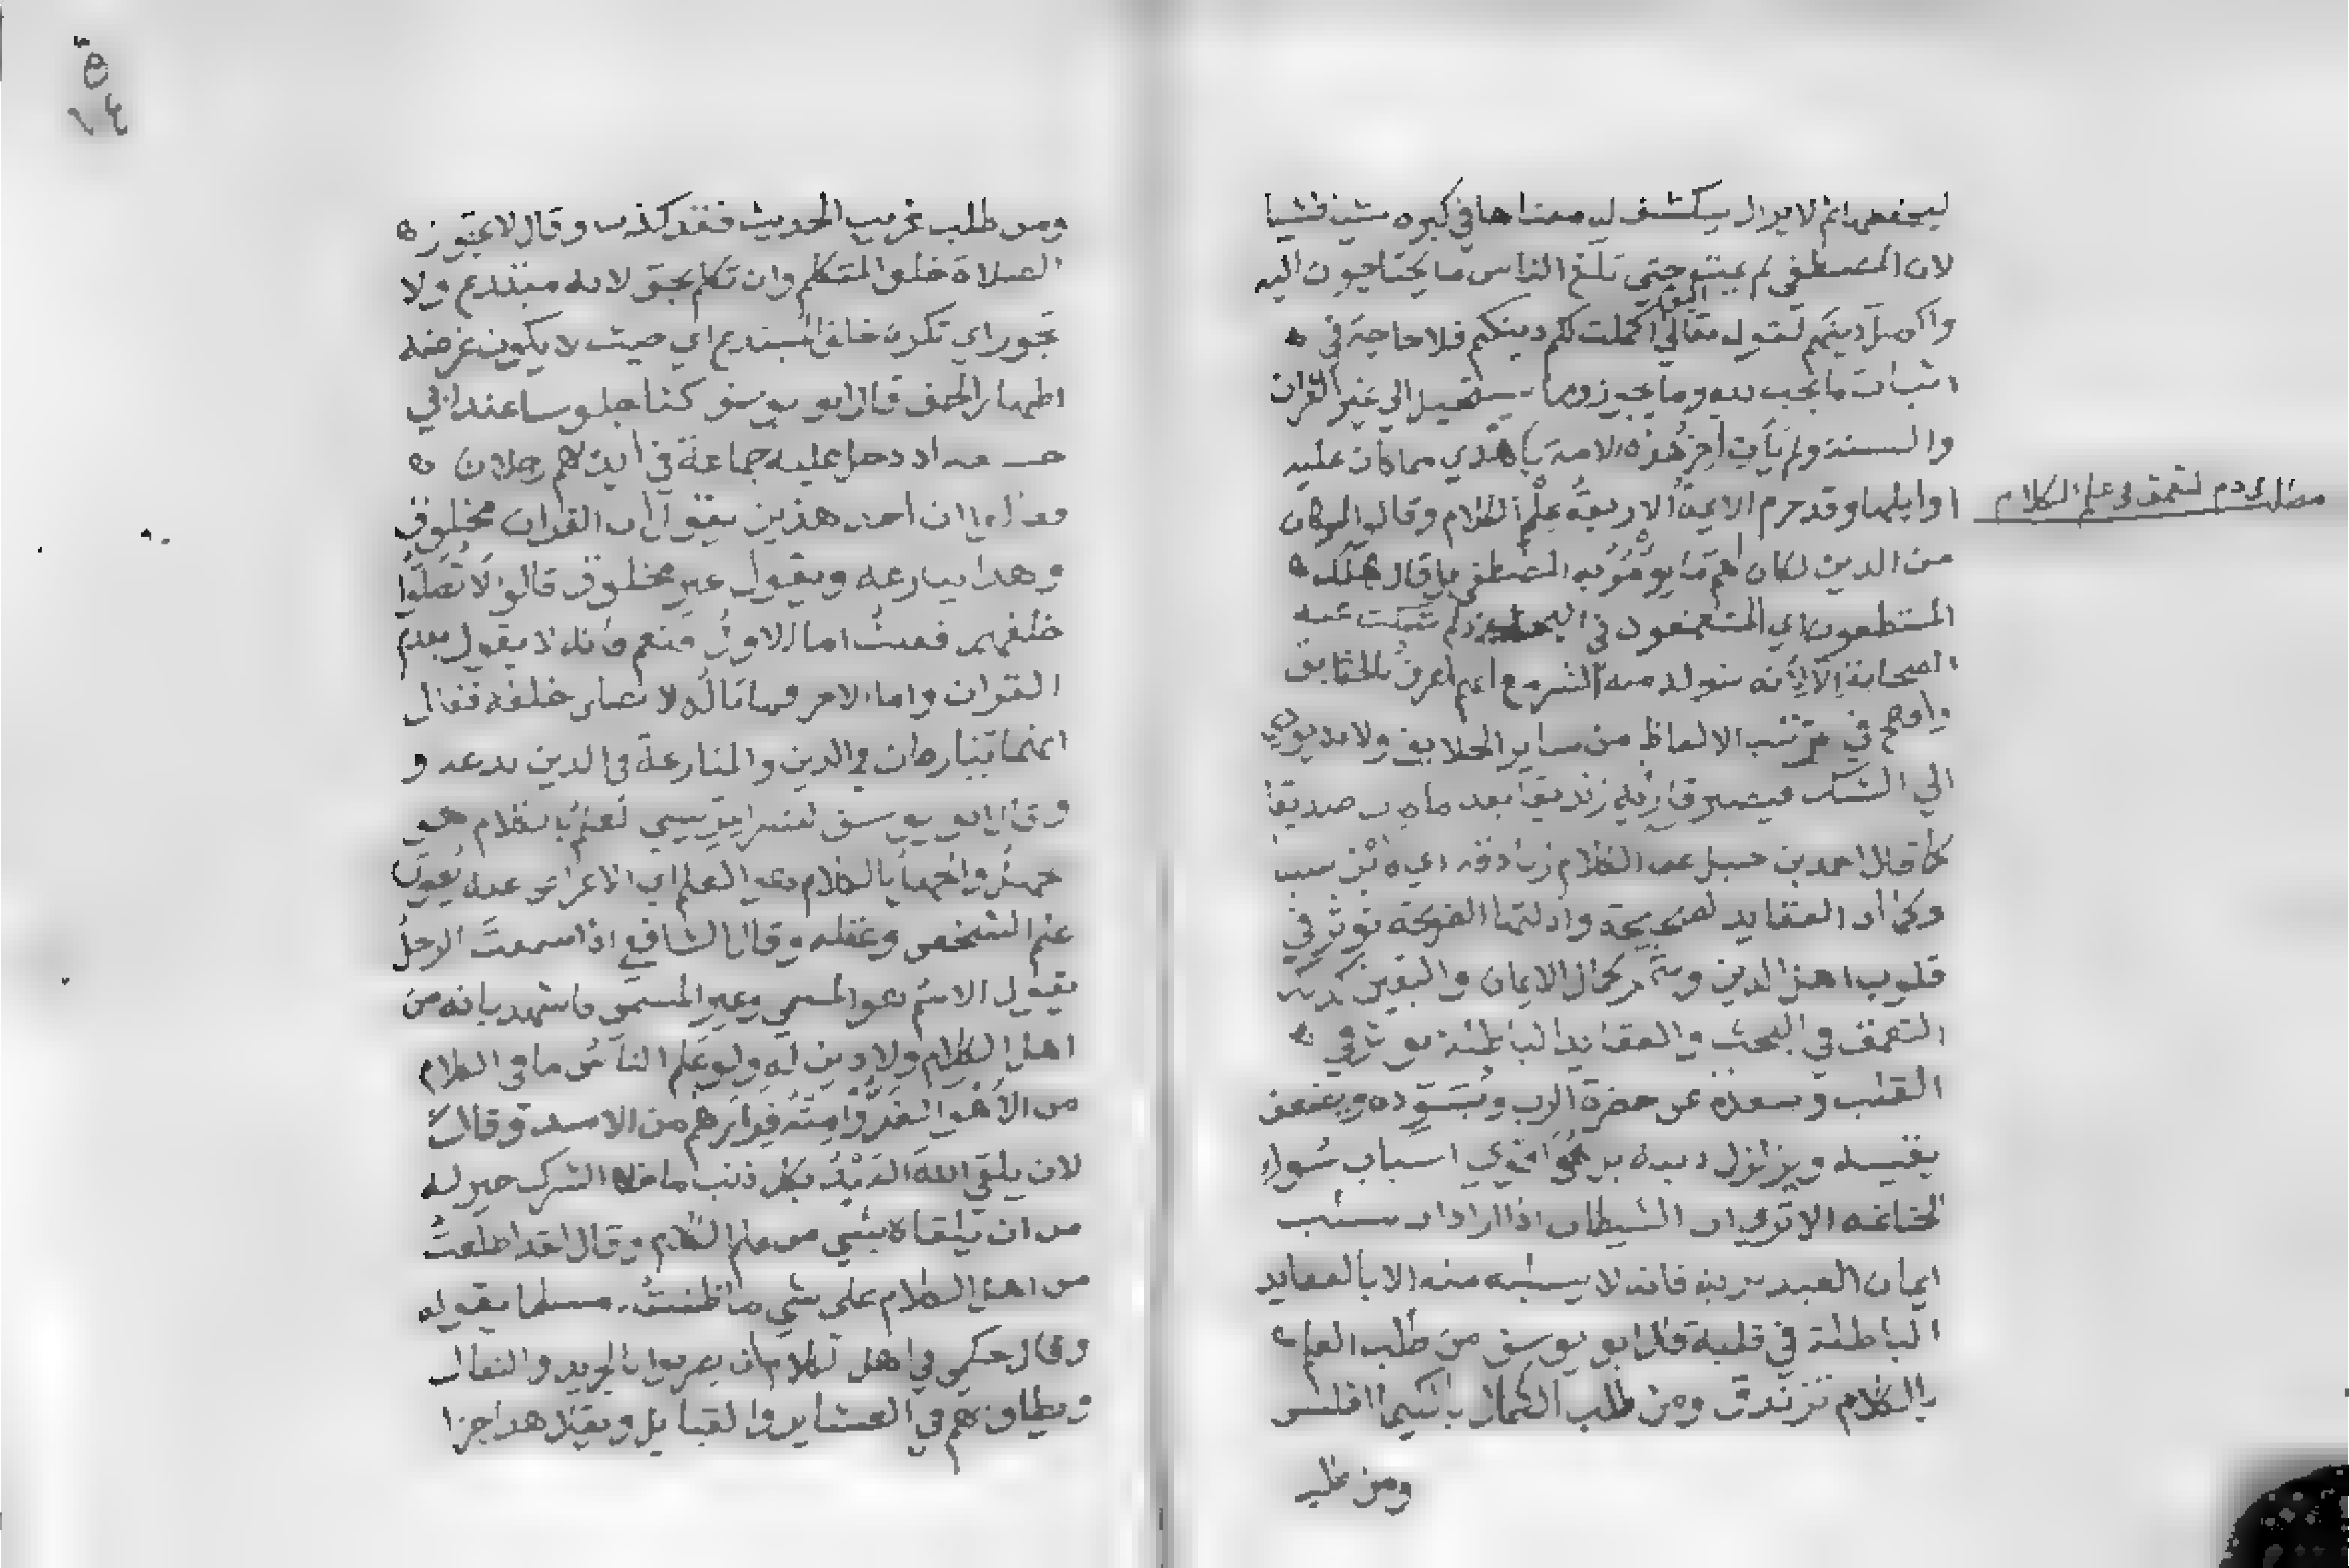 ليحفظه ثم لا يزال ينكشف له معناها في كبره شيئا فشيا
لان المصطفى لم يمت حتى بلغ الناس ما يحتاجون اليه
واكمل دينهم لقوله تعالى اليوم اكملت لكم دينكم فلا حاجة في
اثبات ما يجب لله وما يجوز وما يستحيل الي غير القران
والسنة ولم يأت اخر هذه الامة باهدي مما كان عليه
اوايلها وقد حرم الايمة الاربعة علم الكلام وقالوا لو كان
مطلب في ذم التعمق في علم الكلام
من الدين لكان اهم ما يومر به المصطفى بل قال هلك
المتنطعون اي المتعمقون في البحث ولم يثبت عنه
الصحابة الا لانه يتولد منه الشر مع انهم اعرف بالحقايق
وافصح في ترتيب الالفاظ من ساير الخلايق ولانه يودي
الي الشك فيصير قاريه زنديقا بعد ما كان صديقا
كما قال احمد بن حنبل علما الكلام زنادقة اي
وكما ان العقايد الصحيحة وادلتها القويمة توثر في
قلوب اهل الدين وتثمر كمال الايمان واليقين كذلك
التعمق في البحث والعقايد الباطلة يوثر في
القلب ويبعده عن حضرة الرب ويسوده ويضعف
يقينه ويزلزل دينه بل هو اقوي اسباب سوء
الخاتمة الا تري ان الشيطان اذا اراد ان يسلب
ايمان العبد بربه فانه لا يسلبه منه الا بالعقايد
الباطلة في قلبه قال ابو يوسف من طلب العلم
بالكلام تزندق ومن طلب المال بالكيميا افلس
ومن طلب
ومن طلب غريب الحديث فقد كذب وقال لا تجوز
الصلاة خلف المتكلم وان تكلم بحق لانه مبتدع ولا
تجوز اي تكره خلف المبتدع اي حيث لا يكون غرضه
اظهار الحق قال ابو يوسف كنا جلوسا عند ابي
حنيفة اذ دخل عليه جماعة في ايديهم رجلان
فقالوا ان احد هذين يقول ان القران مخلوق
وهذا ينازعه ويقول غير مخلوق قال لا تصلوا
خلفهما فقلت اما الاول فنعم فانه لا يقول بقدم
القران واما الاخر فما باله لا نصلي خلفه فقال
انهما يتنازعان في الدين والمنازعة في الدين بدعة و
وقال ابو يوسف لبشر المريسي العلم بالكلام هو
جهل والجهل بالكلام هو العلم اي الاعراض عنه يقوي
علم الشخص وعقله وقال الشافعي اذا سمعت الرجل
يقول الاسم هو المسمي وغير المسمي فاشهد بانه من
اهل الكلام ولا دين له ولو علم الناس ما في الكلام
من الاهوا لفروا منه فرارهم من الاسد وقال
لان يلقي الله العبد بكل ذنب ما خلا الشرك خير له
من ان يلقاه بشي من علم الكلام وقال لقد اطلعت
من اهل الكلام علي شي ما ظننت مسلما يقوله
وقال حكمي في اهل الكلام ان يضربوا بالجريد والنعال
ويطاف بهم في العشاير والقبايل ويقال هذا جزا